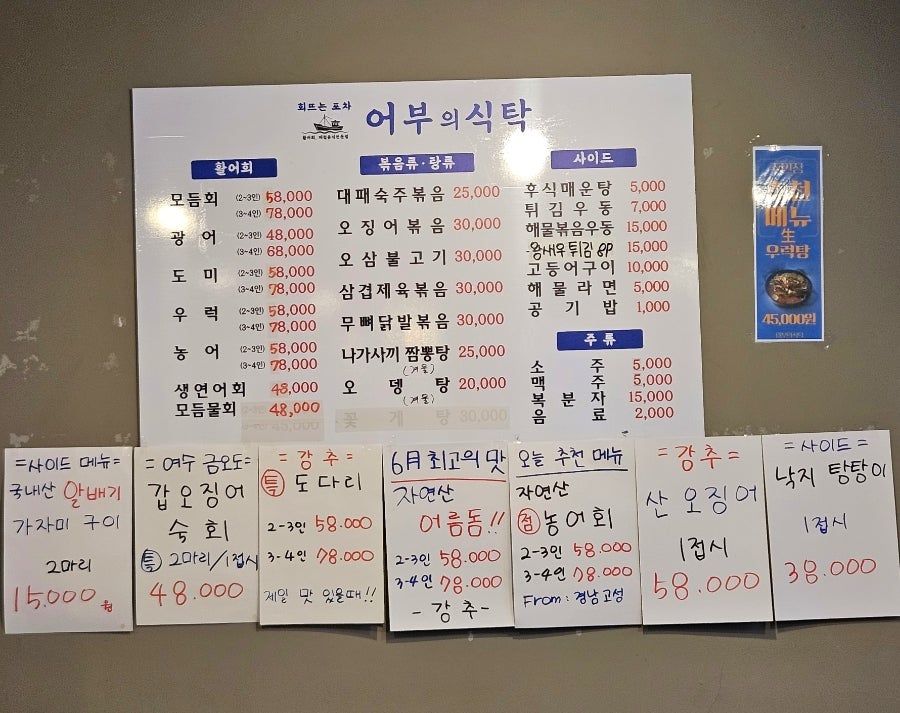 회뜨는 포차
어부의식탁
활어회
모듬회 (2~3인) 58,000
(3~4인) 78,000
광어 (2~3인) 48,000
(3~4인) 68,000
도미 (2~3인) 58,000
(3~4인) 78,000
우럭 (2~3인) 58,000
(3~4인) 78,000
농어 (2~3인) 58,000
(3~4인) 78,000
생연어회 48,000
모듬물회 48,000
볶음류·탕류
대패숙주볶음 25,000
오징어볶음 30,000
오삼불고기 30,000
삼겹제육볶음 30,000
무뼈닭발볶음 30,000
나가사끼 짬뽕탕 25,000
(겨울)
오뎅탕 20,000
(겨울)
꽃게탕 30,000
사이드
후식매운탕 5,000
튀김우동 7,000
해물볶음우동 15,000
왕새우튀김 8P 15,000
고등어구이 10,000
해물라면 5,000
공기밥 1,000
주류
소주 5,000
맥주 5,000
복분자 15,000
음료 2,000
메뉴
生
우럭탕
45,000원
=사이드 메뉴=
국내산 알배기
가자미 구이
2마리
15.000원
=여수 금오도=
갑오징어
숙회
특 2마리/1접시
48.000
=강추=
특 도다리
2-3인 58.000
3-4인 78.000
제일 맛 있을때!!
6月 최고의 맛
자연산
어름돔!!
2-3인 58.000
3-4인 78.000
-강추-
오늘 추천 메뉴
자연산
점 농어회
2-3인 58.000
3-4인 78.000
From: 경남고성
=강추=
산 오징어
1접시
58.000
=사이드=
낙지 탕탕이
1접시
38.000